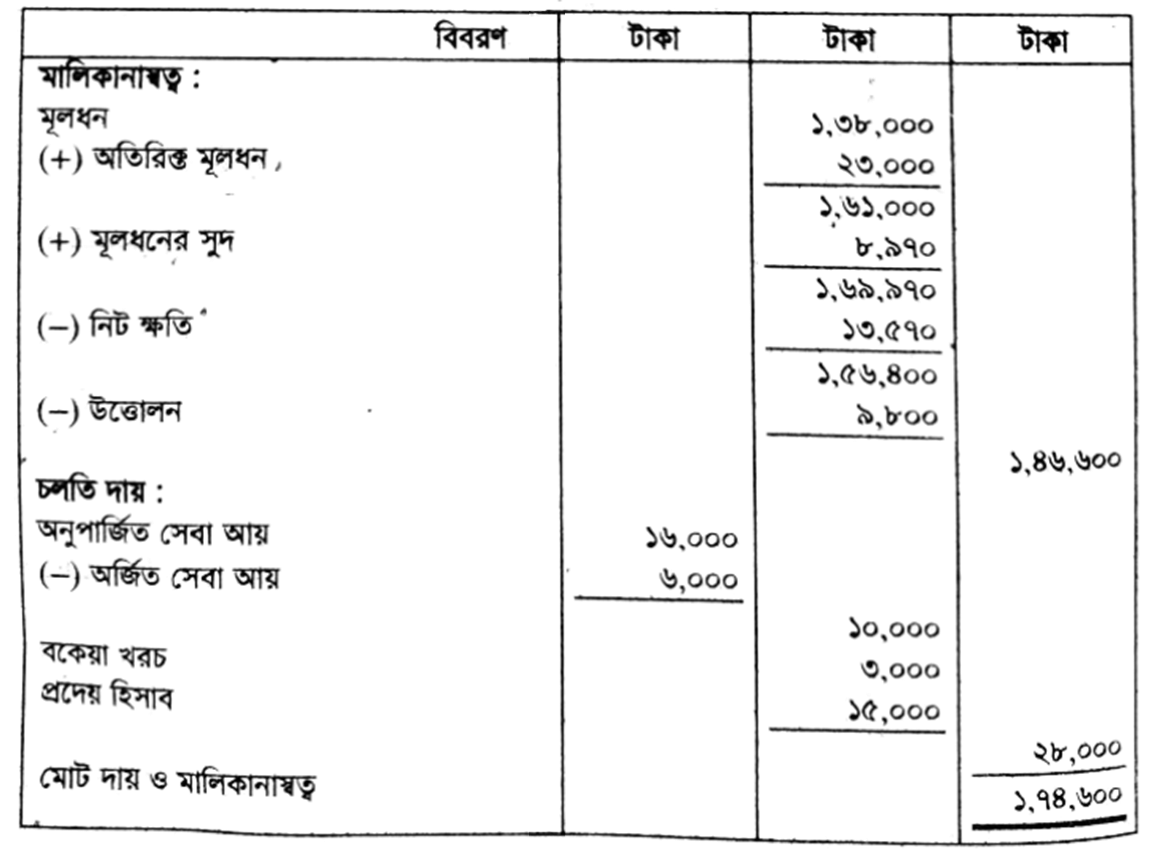 বিবরণ টাকা টাকা টাকা
মালিকানাস্বত্ব :
মূলধন ১,৩৮,০০০
(+) অতিরিক্ত মূলধন ২৩,০০০
১,৬১,০০০
(+) মূলধনের সুদ ৮,৯৭০
১,৬৯,৯৭০
(–) নিট ক্ষতি ১৩,৫৭০
১,৫৬,৪০০
(–) উত্তোলন ৯,৮০০
১,৪৬,৬০০
চলতি দায় :
অনুপার্জিত সেবা আয় ১৬,০০০
(–) অর্জিত সেবা আয় ৬,০০০
১০,০০০
বকেয়া খরচ ৩,০০০
প্রদেয় হিসাব ১৫,০০০
২৮,০০০
মোট দায় ও মালিকানাস্বত্ব ১,৭৪,৬০০